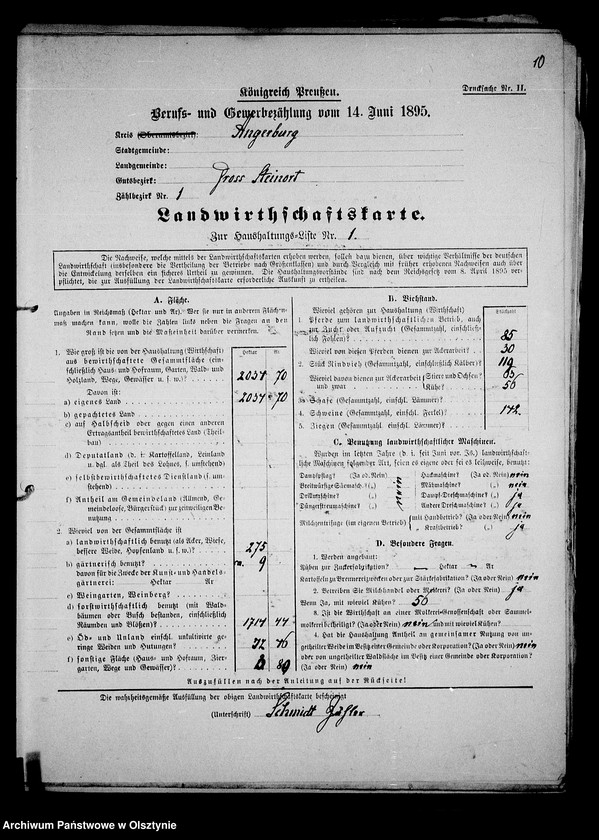 10
Drucksache Nr. II.
Königreich Preußen.
Berufs- und Gewerbezählung vom 14. Juni 1895.
Kreis (Oberamtsbezirk): Angerburg
Stadtgemeinde:
Landgemeinde:
Gutsbezirk: Gross Steinort
Zählbezirk Nr. 1
Landwirthschaftskarte.
Zur Haushaltungs-Liste Nr. 1.
Die Nachweise, welche mittels der Landwirthschaftskarten erhoben werden, sollen dazu dienen, über wichtige Verhältnisse der deutschen
Landwirthschaft (insbesondere die Vertheilung der Betriebe nach Größenklassen) und durch Vergleich mit früher erhobenen Nachweisen auch über
die Entwickelung derselben ein sicheres Urtheil zu gewinnen. Die Haushaltungsvorstände sind nach dem Reichsgesetz vom 8. April 1895 ver-
pflichtet, die zur Ausfüllung der Landwirthschaftskarte erforderliche Auskunft zu ertheilen.
A. Fläche.
Angaben in Reichsmaß (Hektar und Ar). Wer sie nur in anderem Flächen-
maß machen kann, wolle die Zahlen links neben die Fragen an den
Rand setzen und die Maßeinheit darüber vermerken.
Hektar Ar
1. Wie groß ist die von der Haushaltung (Wirthschaft)
aus bewirthschaftete Gesammtfläche (ein-
schließlich Haus- und Hofraum, Garten, Wald- und
Holzland, Wege, Gewässer u. s. w.)? 2034 70
Davon ist:
a) eigenes Land 2034 70
b) gepachtetes Land
c) auf Halbscheid oder gegen einen anderen
Ertragsantheil bewirthschaftetes Land (Theil-
bau)
d) Deputatland (d. i. Kartoffelland, Leinland
u. dgl. als Theil des Lohnes, s. umstehend)
e) selbstbewirthschaftetes Dienstland (s. um-
stehend)
f) Antheil am Gemeindeland (Allmend, Ge-
meindeloose, Bürgerstück) zur zeitweiligen Be-
nutzung
2. Wieviel von der Gesammtfläche ist
a) landwirthschaftlich benutzt (als Acker, Wiese,
bessere Weide, Hopfenland u. s. w.)? 275
b) gärtnerisch benutzt? 9
davon für die Zwecke der Kunst- und Handels-
gärtnerei: Hektar Ar
c) Weingarten, Weinberg?
d) forstwirthschaftlich benutzt (mit Wald-
bäumen oder Busch bestanden, einschließlich
Räumden und Blößen)? 1714 44
e) Öd- und Unland einschl. unkultivirte ge-
ringe Weiden und Hutungen? 32 76
f) sonstige Fläche (Haus- und Hofraum, Zier-
garten, Wege und Gewässer)? 89
B. Viehstand.
Stückzahl
Wieviel gehören zur Haushaltung (Wirthschaft)
1. Pferde zum landwirthschaftlichen Betrieb, auch
zur Zucht oder Aufzucht (Gesammtzahl, einschließ-
lich Fohlen)? 85
Wieviel von diesen Pferden dienen zur Ackerarbeit? 30
2. Stück Rindvieh (Gesammtzahl, einschließlich Kälber)? 119
Wieviel davon dienen zur Ackerarbeit
und zwar
Stiere und Ochsen?
Kühe? 50
3. Schafe (Gesammtzahl, einschl. Lämmer)?
4. Schweine (Gesammtzahl, einschl. Ferkel)? 142
5. Ziegen (Gesammtzahl, einschl. Lämmer)?
C. Benutzung landwirthschaftlicher Maschinen.
Wurden im letzten Jahre (d. i. seit Juni vor. Js.) landwirthschaft-
liche Maschinen folgender Art, seien es eigene oder sei es leihweise, benutzt:
Dampfpflug? (Ja od. Nein) Hackmaschine? (Ja od. Nein) nein
Breitwürfige Säemasch.? („) Mähmaschine? („) nein
Drillmaschine? („) nein Dampf-Dreschmaschine? („) ja
Düngerstreumaschine? („) Andere Dreschmaschine? („) ja
Milchzentrifuge (im eigenen Betrieb) mit Handbetrieb? (Ja oder Nein) nein
Kraftbetrieb? („) ja
D. Besondere Fragen.
1. Werden angebaut:
Rüben zur Zuckerfabrikation? — Hektar — Ar
Kartoffeln zu Brennereizwecken oder zur Stärkefabrikation? (Ja oder Nein) nein
2. Betreiben Sie Milchhandel oder Molkerei? (Ja oder Nein) ja
Wenn Ja, mit wieviel Kühen? 50
3. Ist die Wirthschaft an einer Molkerei-Genossenschaft oder Sammel-
molkerei betheiligt? (Ja oder Nein) nein und mit wieviel Kühen?
4. Hat die Haushaltung Antheil an gemeinsamer Nutzung von un-
getheilter Weide im Besitz einer Gemeinde oder Korporation? (Ja oder Nein) nein
oder von ungetheilter Waldfläche im Besitz einer Gemeinde oder Korporation?
(Ja oder Nein) nein
Auszufüllen nach der Anleitung auf der Rückseite!
Die wahrheitsgemäße Ausfüllung der obigen Landwirthschaftskarte bescheinigt
(Unterschrift) Schmidt Zähler
Archiwum Państwowe w Olsztynie